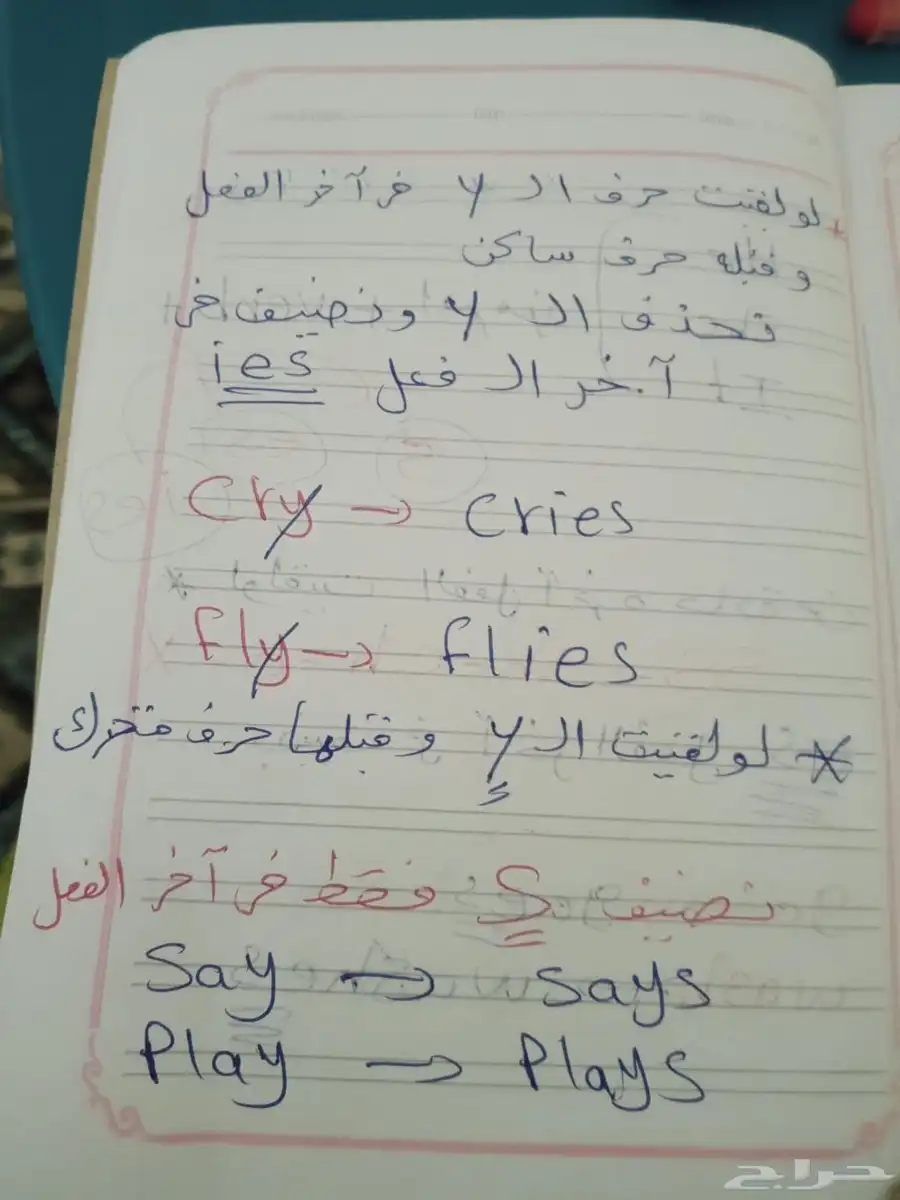 لو لقيت حرف الـ y في آخر الفعل
و قبله حرف ساكن
نحذف الـ y و نضيف في
آخر الـ فعل ies
Cry → Cries
fly → flies
* لو لقيت الـ y و قبلها حرف متحرك
نضيف S فقط في آخر الفعل
Say → says
Play → Plays
حراج